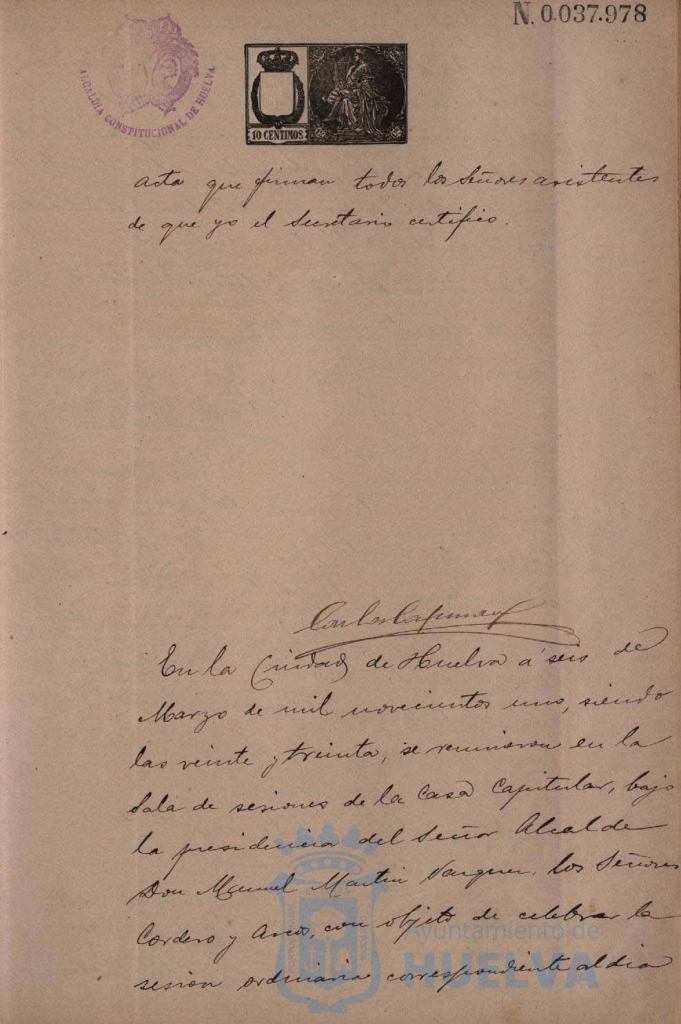 N. 0.037.978
ALCALDIA CONSTITUCIONAL DE HUELVA
10 CENTIMOS
acta que firman todos los Señores asistentes
de que yo el Secretario certifico.
En la Ciudad de Huelva á seis de
Marzo de mil novecientos uno, siendo
las veinte y treinta, se reunieron en la
Sala de sesiones de la Casa Capitular, bajo
la presidencia del Señor Alcalde
Don Manuel Martin Vazquez, los Señores
Cordero y Arcos, con objeto de celebrar la
sesion ordinaria correspondiente al dia
Ayuntamiento de
HUELVA